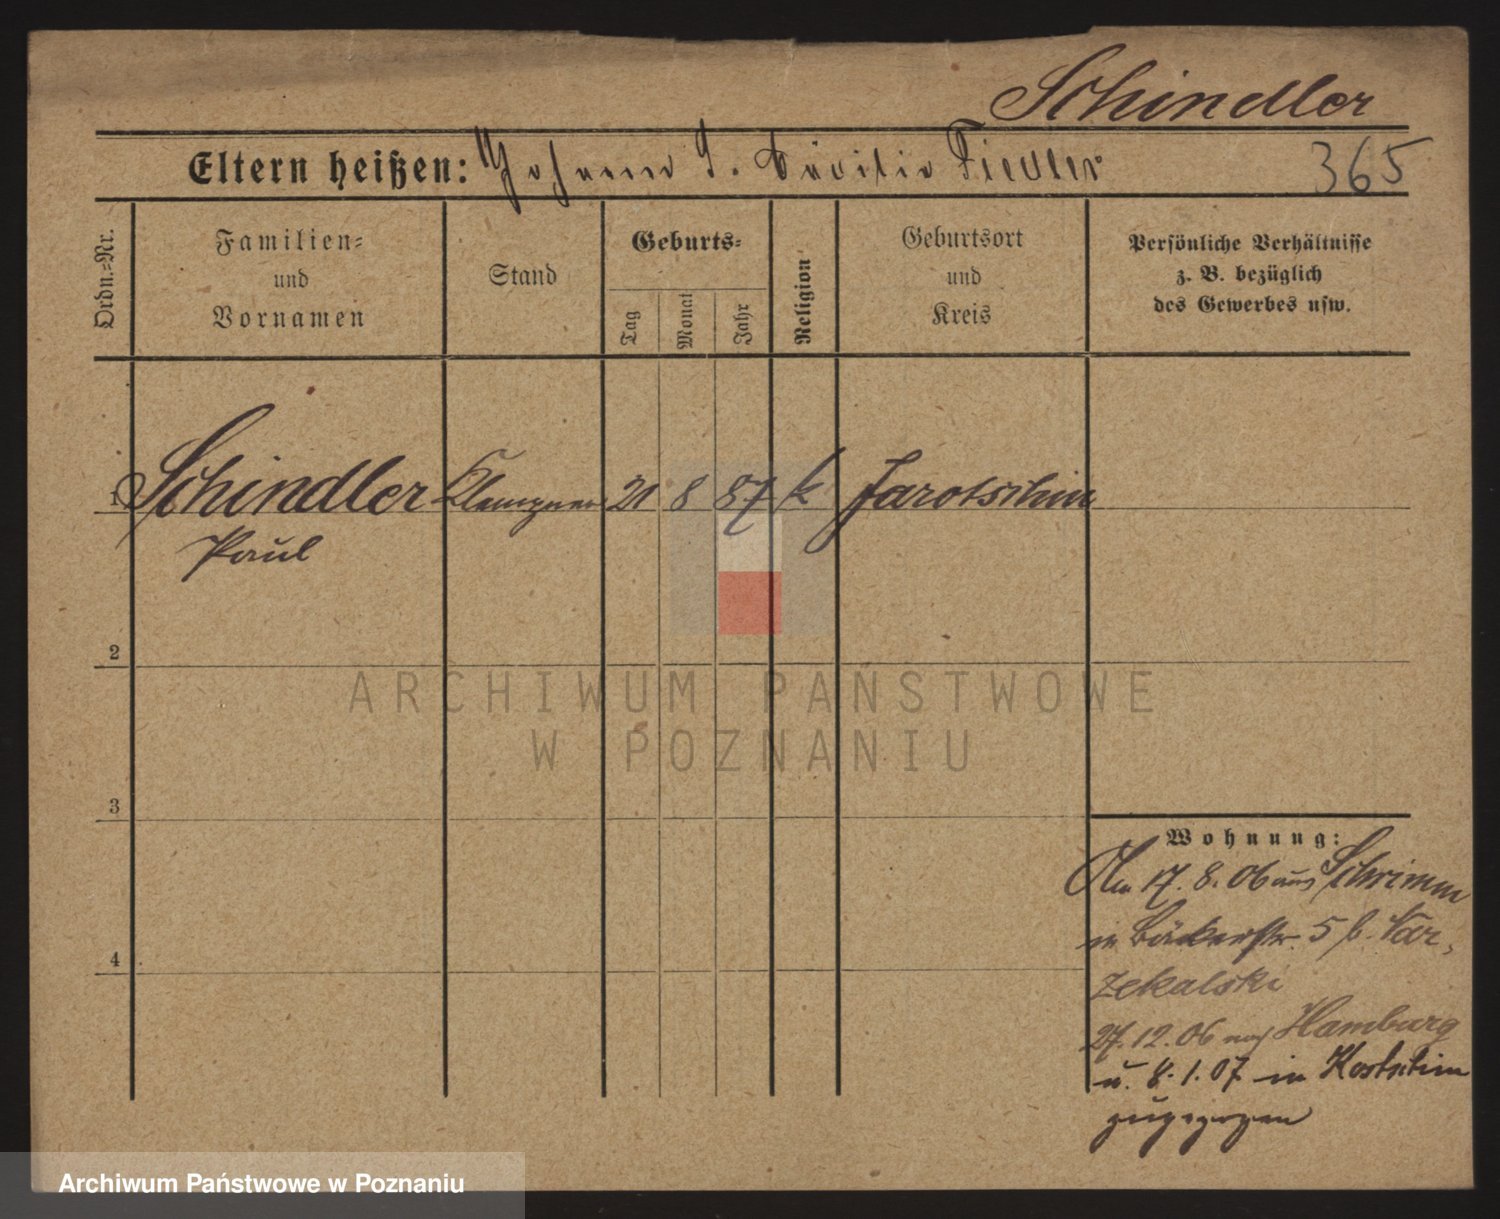 Schindler
Eltern heißen: Johann S. Cäcilie Fiedler
365
Ordn.=Nr.
Familien=
und
Vornamen
Stand
Geburts=
Tag
Monat
Jahr
Religion
Geburtsort
und
Kreis
Persönliche Verhältnisse
z. B. bezüglich
des Gewerbes usw.
1 Schindler Klempner 21 8 87 k Jarotschin
Paul
2
ARCHIWUM PAŃSTWOWE
W POZNANIU
3
4
Wohnung:
Am 17. 8. 06 aus Schrimm
in Bäckerstr. 5 b. Kar-
zekalski
27.12.06 nach Hamburg
u. 8.1.07 in Kostschin
zugezogen
Archiwum Państwowe w Poznaniu